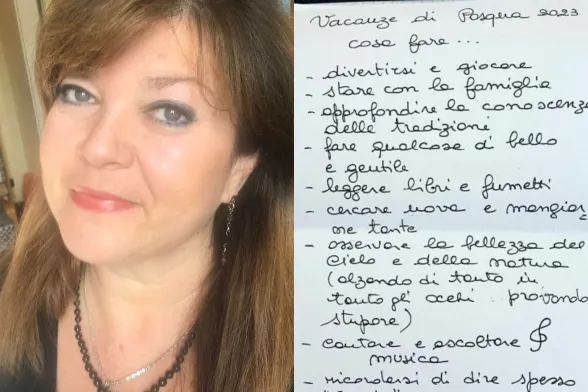 Vacanze di Pasqua 2023
cosa fare...
- divertirsi e giocare
- stare con la famiglia
- approfondire la conoscenza
delle tradizioni
- fare qualcosa di bello
e gentile
- leggere libri e fumetti
- cercare uova e mangiar
ne tante
- osservare la bellezza del
cielo e della natura
(alzando di tanto in
tanto gli occhi provando
stupore)
- cantare e ascoltare
musica
- ricordarsi di dire spesso